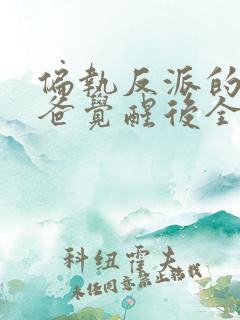 偏執反派的
爸覺醒後全
科紐霍夫
未经同意禁止转载